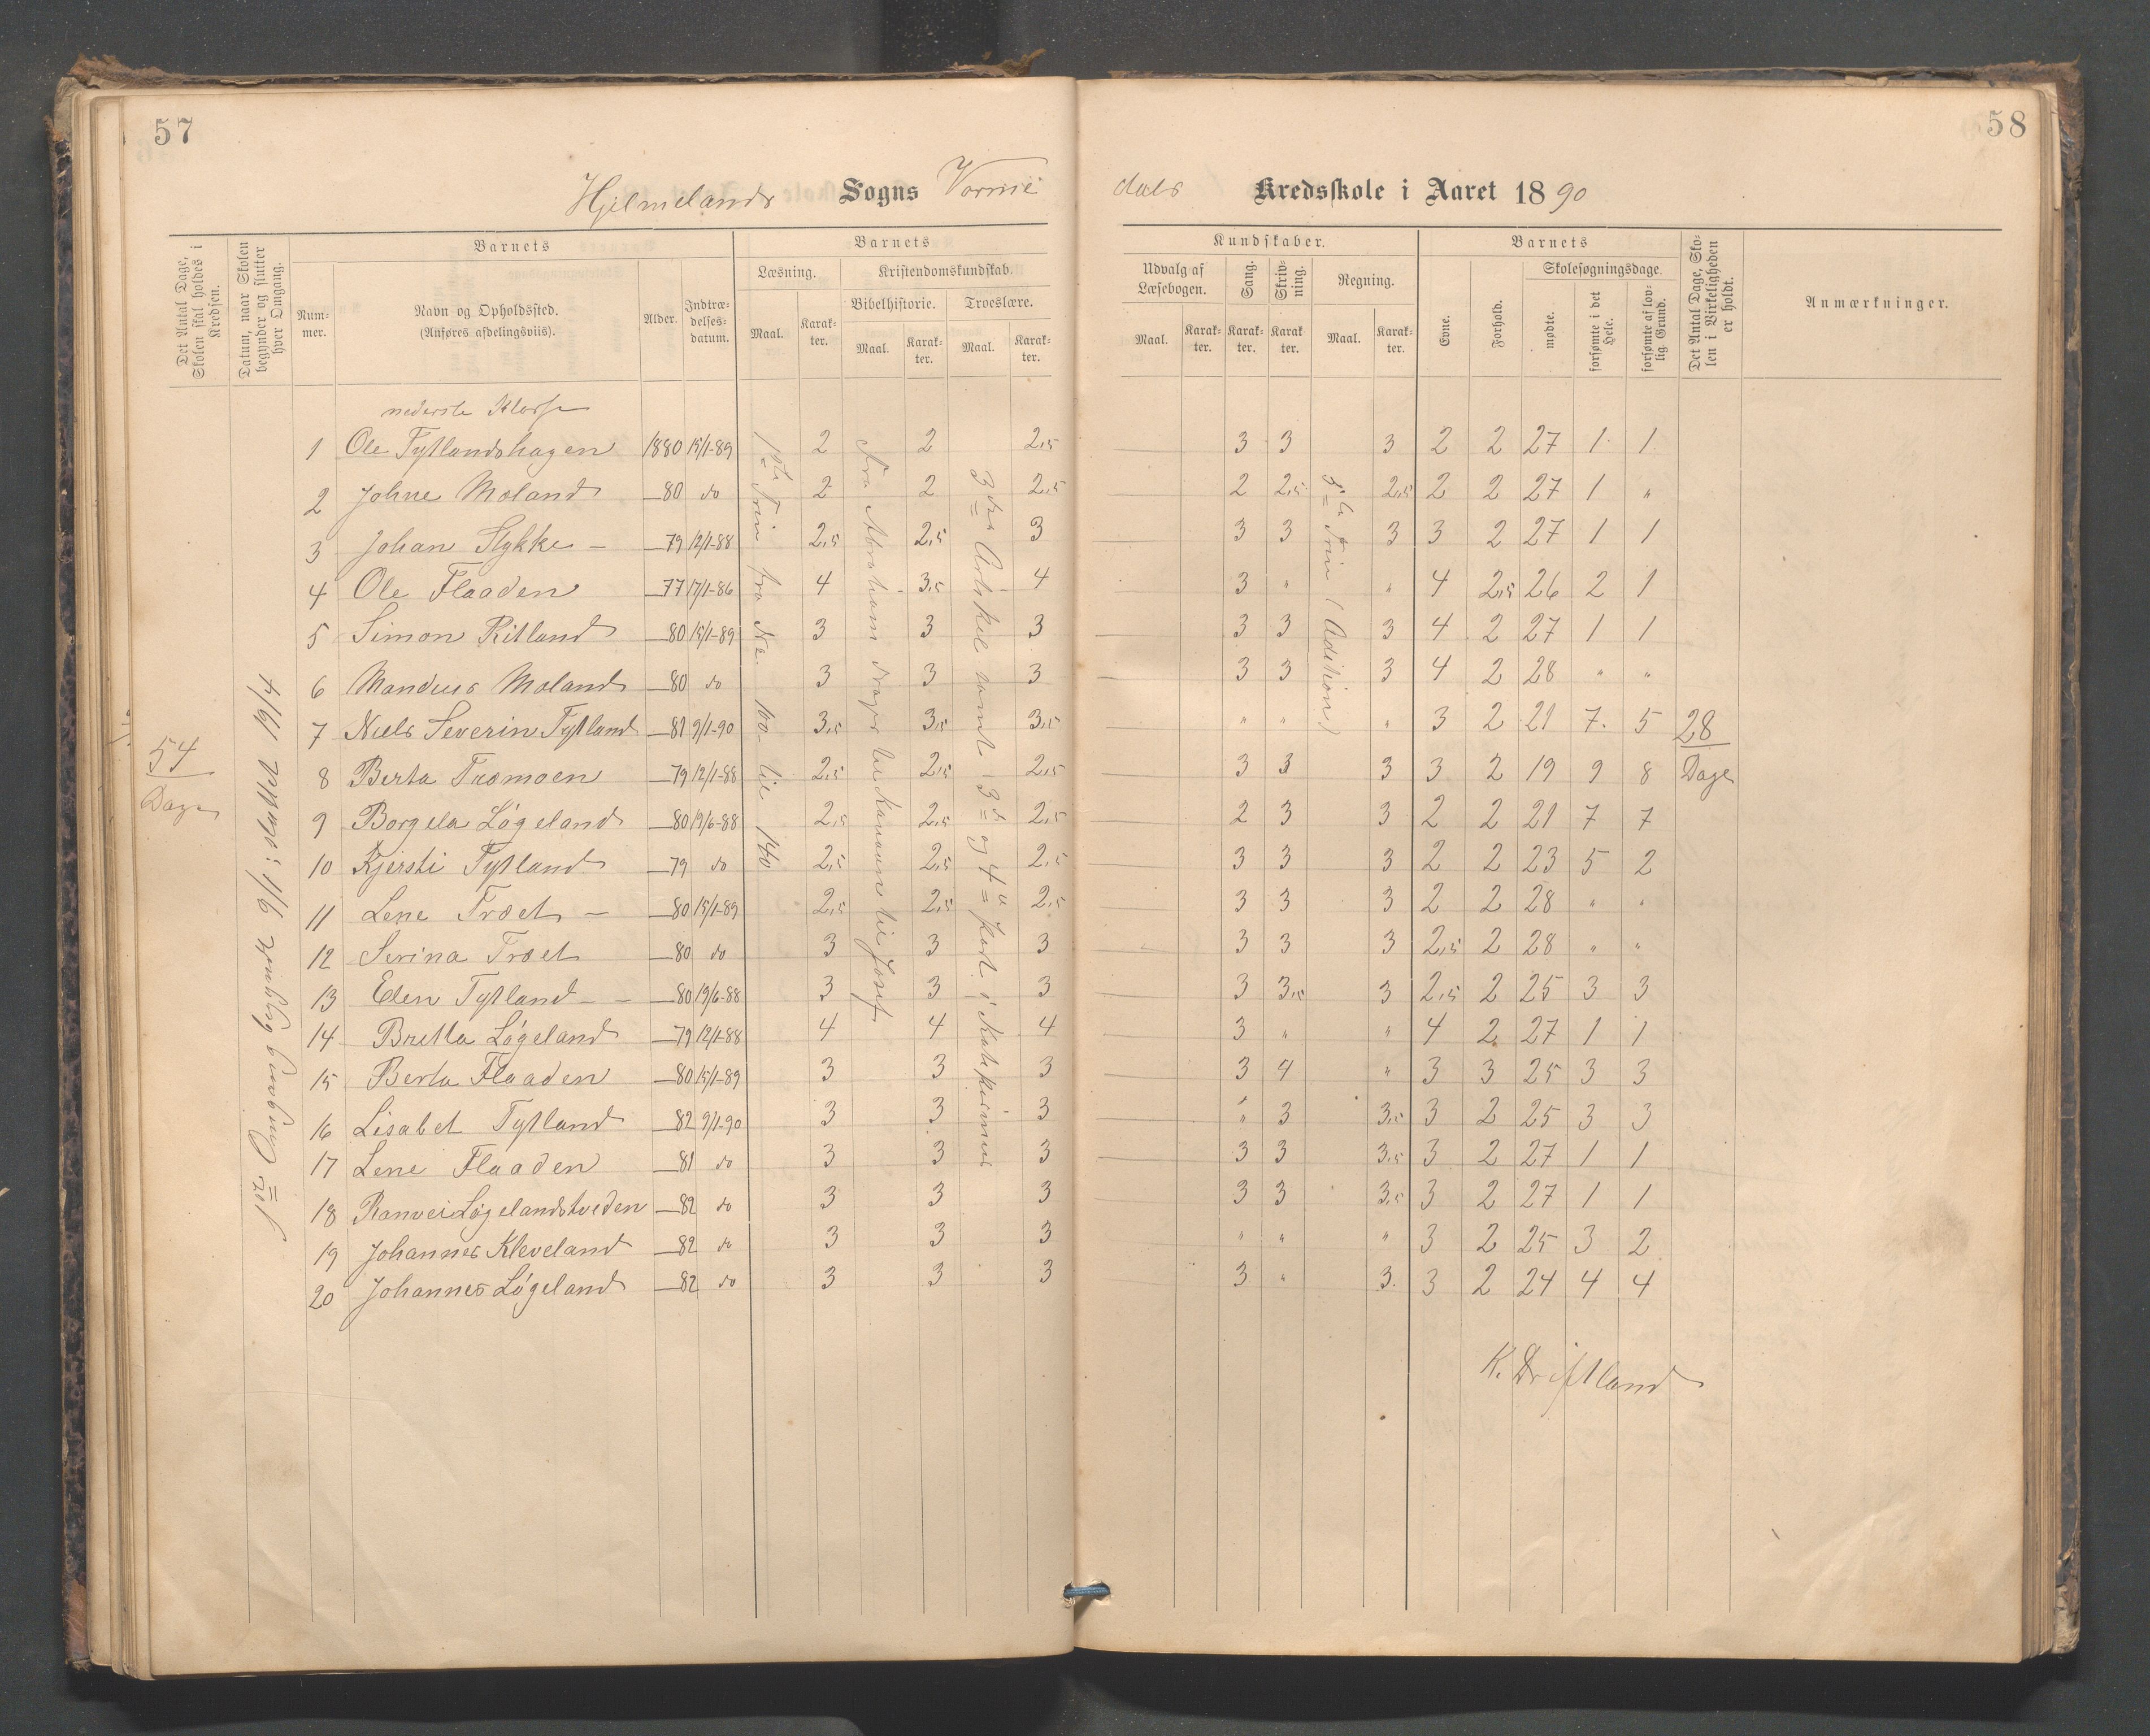 57
58
Hjelmelands Sogns Vorme
dals Kredsskole i Aaret 1890
Det Antal Dage, Skolen skal holdes i Kredsen.
Datum, naar Skolen begynder og slutter hver Omgang.
Barnets
Nummer.
Navn og Opholdssted. (Anføres afdelingsviis).
Alder.
Indtrædelses-datum.
Barnets
Læsning.
Maal.
Karakter.
Kristendomskundskab.
Bibelhistorie.
Maal.
Karakter.
Troeslære.
Maal.
Karakter.
Kundskaber.
Udvalg af Læsebogen.
Maal.
Karakter.
Sang.
Karakter.
Skrivning.
Karakter.
Regning.
Maal.
Karakter.
Barnets
Evne.
Forhold.
Skolesøgningsdage.
mødte.
forsømte i det Hele.
forsømte af lovlig Grund.
Det Antal Dage, Skolen i Virkeligheden er holdt.
Anmærkninger.
54 Dage
1ste Omgang begyndte 9/1; sluttet 19/4
nederste Klasse
1 Ole Tytlandshagen 1880 15/1-89 2 2 2,5 3 3 3 2 2 27 1 1
2 Johne Moland —80 do 2 2 2,5 2 2,5 2,5 2 2 27 1 "
3 Johan Stykke — —79 12/1-88 2,5 2,5 3 3 3 3 3 2 27 1 1
4 Ole Flaaden —77 17/1-86 4 3,5 4 3 " " 4 2,5 26 2 1
5 Simon Ritland —80 15/1-89 3 3 3 3 3 3 4 2 27 1 1
6 Mandius Moland —80 do 3 3 3 3 3 3 4 2 28 " "
7 Niels Severin Tytland —81 9/1-90 3,5 3,5 3,5 " " " 3 2 21 7 5 28
8 Berta Træmoen —79 12/1-88 2,5 2,5 2,5 3 3 3 3 2 19 9 8 Dage
9 Borgela Løgeland —80 19/6-88 2,5 2,5 2,5 2 3 3 2 2 21 7 7
10 Kjersti Tytland —79 do 2,5 2,5 2,5 3 3 3 2 2 23 5 2
11 Lene Træet — —80 15/1-89 2,5 2,5 2,5 3 3 3 2 2 28 " "
12 Serina Træet —80 do 3 3 3 3 3 3 2,5 2 28 " "
13 Elen Tytland — —80 19/6-88 3 3 3 3 3,5 3 2,5 2 25 3 3
14 Britta Løgeland —79 12/1-88 4 4 4 3 " " 4 2 27 1 1
15 Berta Flaaden —80 15/1-89 3 3 3 3 4 " 3 3 25 3 3
16 Lisabet Tytland —82 9/1-90 3 3 3 " 3 3,5 3 2 25 3 3
17 Lene Flaaden —81 do 3 3 3 3 3 3,5 3 2 27 1 1
18 Ranvei Løgelandstveden —82 do 3 3 3 3 3 3,5 3 2 27 1 1
19 Johannes Kleveland —82 do 3 3 3 " " " 3 2 25 3 2
20 Johannes Løgeland —82 do 3 3 3 3 " 3 3 2 24 4 4
1ste Trin fra No. 100 til 140
Fra Abraham drager til Kanaan til Josef
3die Artikel samt 3die og 4de Part i Katekismus
Trin (Adition)